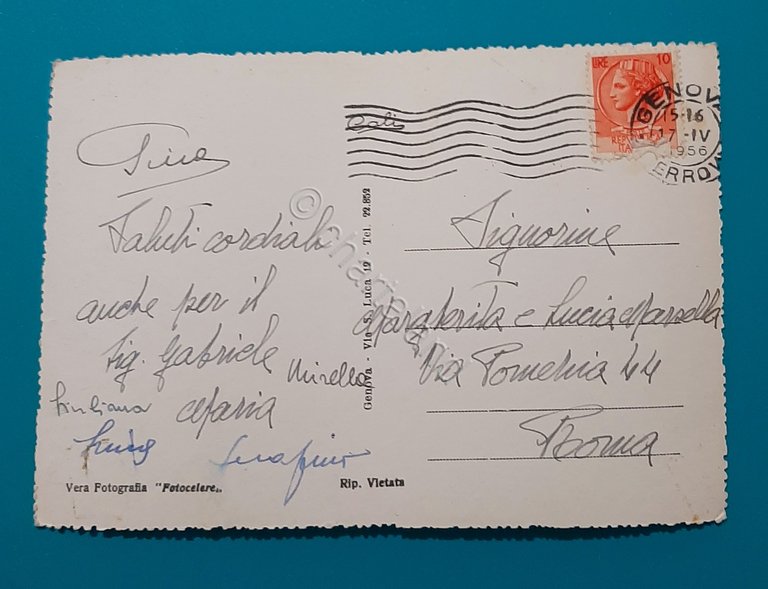 LIRE 10
GENOVA
15-16
17-IV
1956
FERROVIA
REPUBBLICA
Saluti cordiali
anche per il
Sig. Gabriele
Mirella
Giuliana Maria
Serafino
Vera Fotografia "Fotocelere"
Rip. Vietata
Genova - Via S. Luca 12 - Tel. 22.852
Signorine
Margherita e Lucia Marsella
Via Pomeria 44
Roma